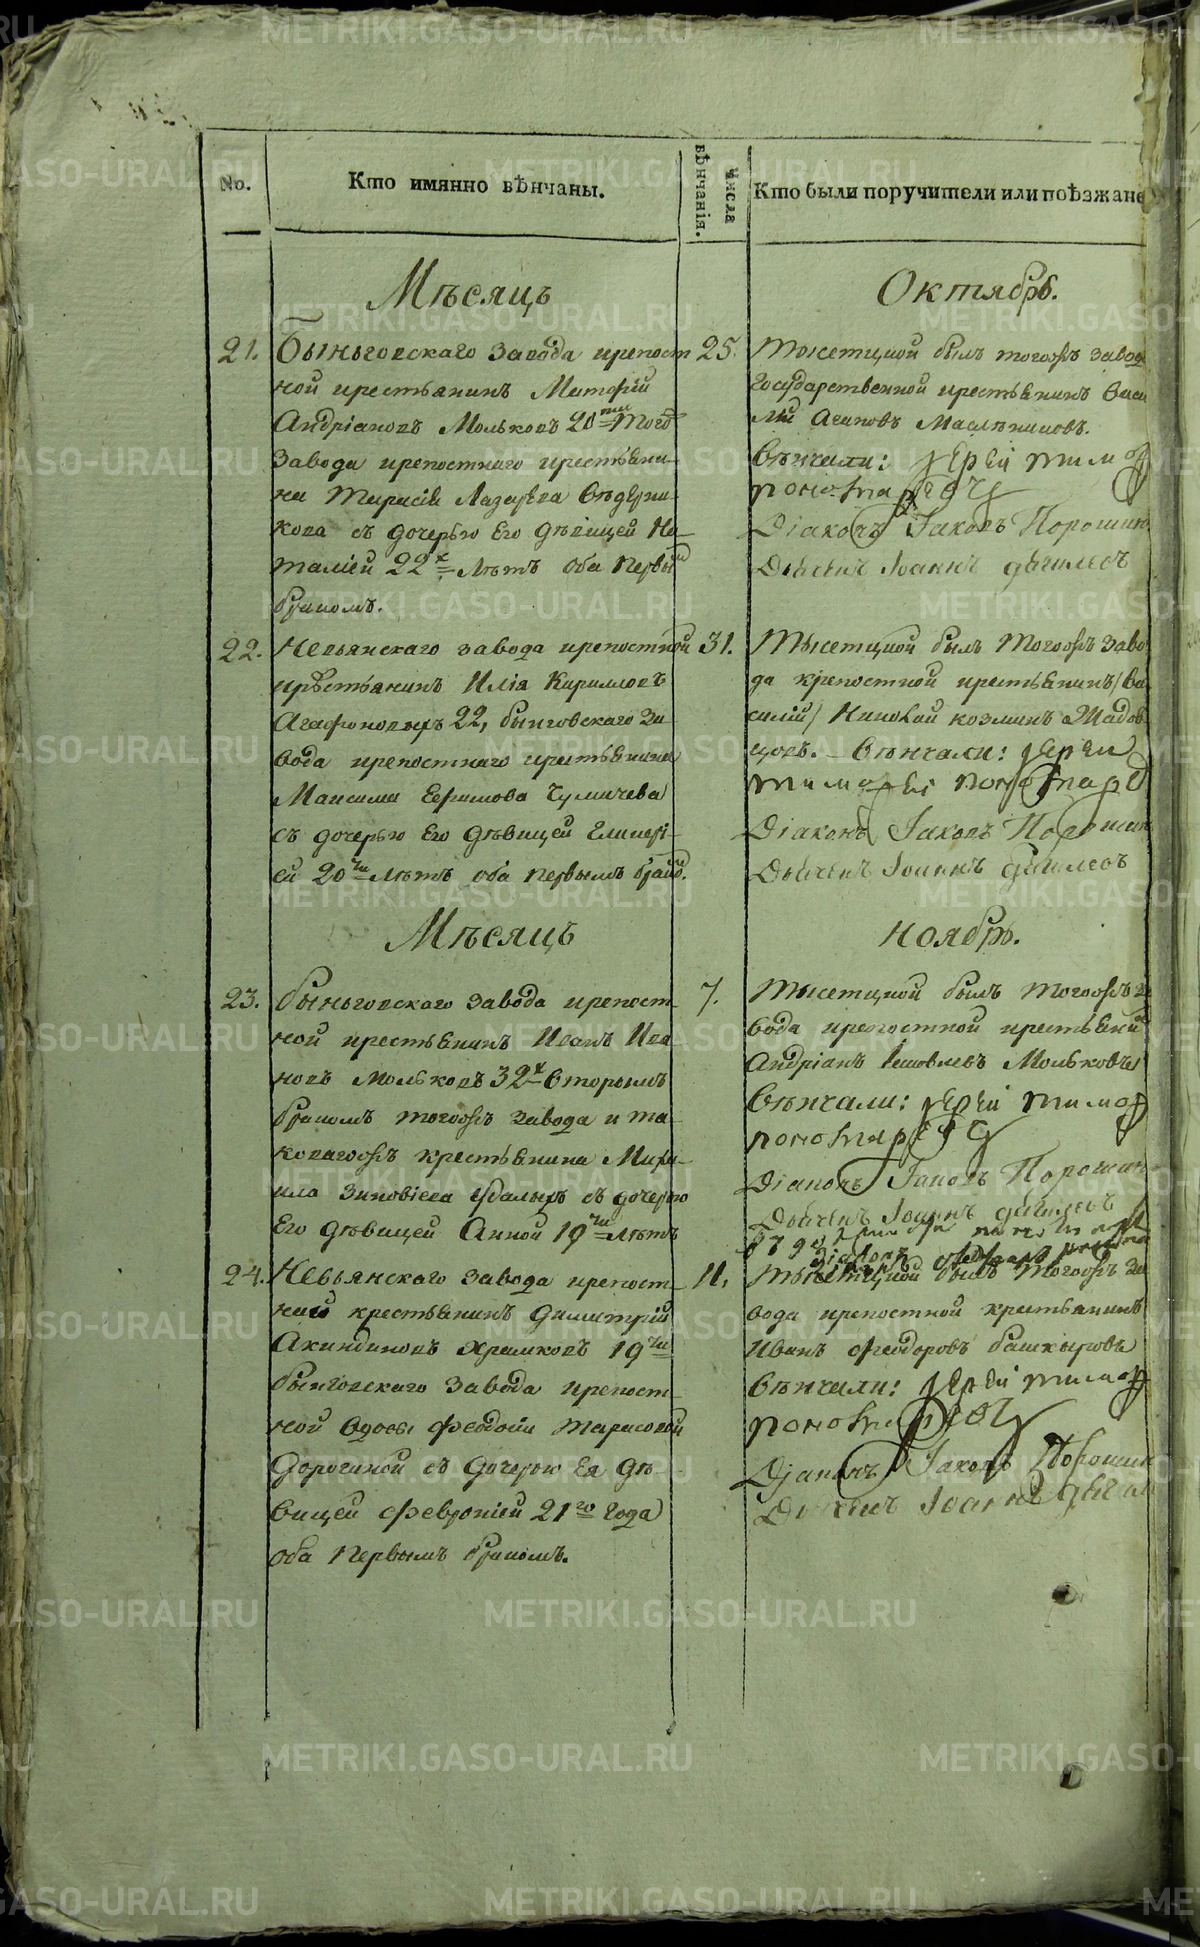 No.
Кто имянно вѣнчаны.
Числа вѣнчанія.
Кто были поручители или поѣзжане
Мѣсяцъ
Октябрь.
21. Быньговскаго завода крепост
ной крестьянинъ Матфій
Андріановъ Мольковъ 20ти того
завода крепостнаго крестьяни-
на Тарасія Лазарева Ведерни-
кова съ дочерью его девицей На-
таліей 22х летъ оба первы
бракомъ.
25. Тысетцкой былъ тогожъ завода
государственной крестьянинъ Васи
лій Агаповъ Масленниковъ.
Венчали: іерей тимоф
пономаревъ
Діаконъ Іаковъ Порошин
Дьячекъ Іоаннъ
22. Невьянскаго завода крепостной
крестьянинъ Илія Кирилловъ
Агафоновыхъ 22, быньговскаго за-
вода крепостнаго крестьянина
Максима Ефимова Чумичева
съ дочерью его девицей Гликері-
ей 20ти летъ оба первымъ брако.
31. Тысетцкой былъ тогожъ заво
да крепостной крестьянинъ /Ва
силій/ Николай козминъ Шадов
цовъ. Венчали: іерей
тимофей пономарев
Діаконъ Іаковъ Порошин
Дьячекъ Іоаннъ
Мѣсяцъ
Ноябрь.
23. Быньговскаго завода крепост-
ной крестьянинъ Иванъ Ива
новъ Мольковъ 32х вторымъ
бракомъ тогожъ завода и та-
ковагожъ крестьянина Миха-
ила Зиновіева съ дочерью
его девицей Анной 19ти летъ
7. Тысетцкой былъ тогожъ за
вода крепостной крестьяни
Андріанъ Яковлевъ Мольковъ
Венчали: іерей тимоф
пономаревъ
Діаконъ Іаковъ Порошин
Дьячекъ Іоаннъ
24. Невьянскаго завода крепост-
ной крестьянинъ Димитрій
Акиндиновъ Храмковъ 19ти
быньговскаго завода крепост-
ной вдовы Феодосіи Тарасовой
Дорогиной съ дочерью ея де-
вицей Февроніей 21го года
оба первымъ бракомъ.
11. Тысетцкой былъ тогожъ за
вода крепостной крестьянинъ
Иванъ Феодоровъ башкыровъ
Венчали: іерей тимоф
пономаревъ
Діаконъ Іаковъ Порошин
Дьячекъ Іоаннъ
METRIKI.GASO-URAL.RU